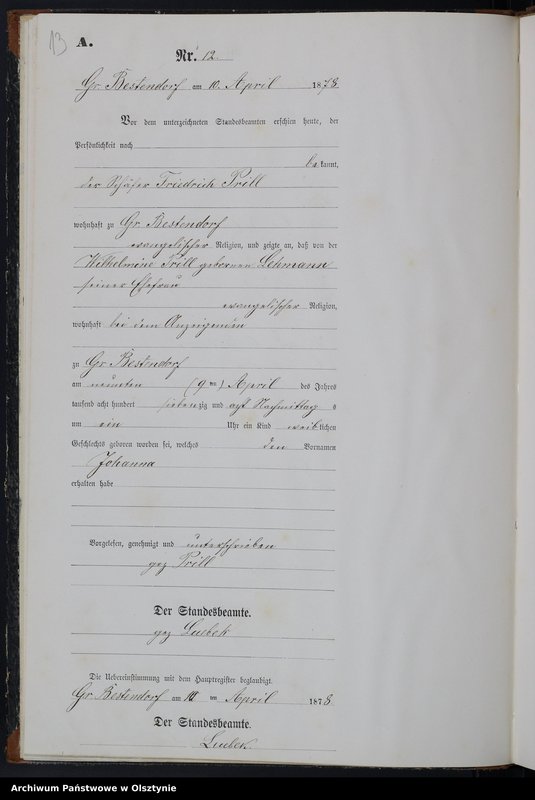 13
A.
Nr. 12.
Gr. Bestendorf am 10. April 1878
Vor dem unterzeichneten Standesbeamten erschien heute, der
Persönlichkeit nach
be kannt,
der Schäfer Friedrich Prill
wohnhaft zu Gr. Bestendorf
evangelischer Religion, und zeigte an, daß von der
Wilhelmine Prill geborenen Lehmann
seiner Ehefrau
evangelischer Religion,
wohnhaft bei dem Anzeigenden
zu Gr. Bestendorf
am neunten (9 ten) April des Jahres
tausend acht hundert siebenzig und acht Nachmittags
um ein Uhr ein Kind weiblichen
Geschlechts geboren worden sei, welches den Vornamen
Johanna
erhalten habe
Vorgelesen, genehmigt und unterschrieben
gez Prill
Der Standesbeamte.
gez Luebek
Die Uebereinstimmung mit dem Hauptregister beglaubigt.
Gr. Bestendorf am ten April 1878
Der Standesbeamte.
Luebek.
Archiwum Państwowe w Olsztynie